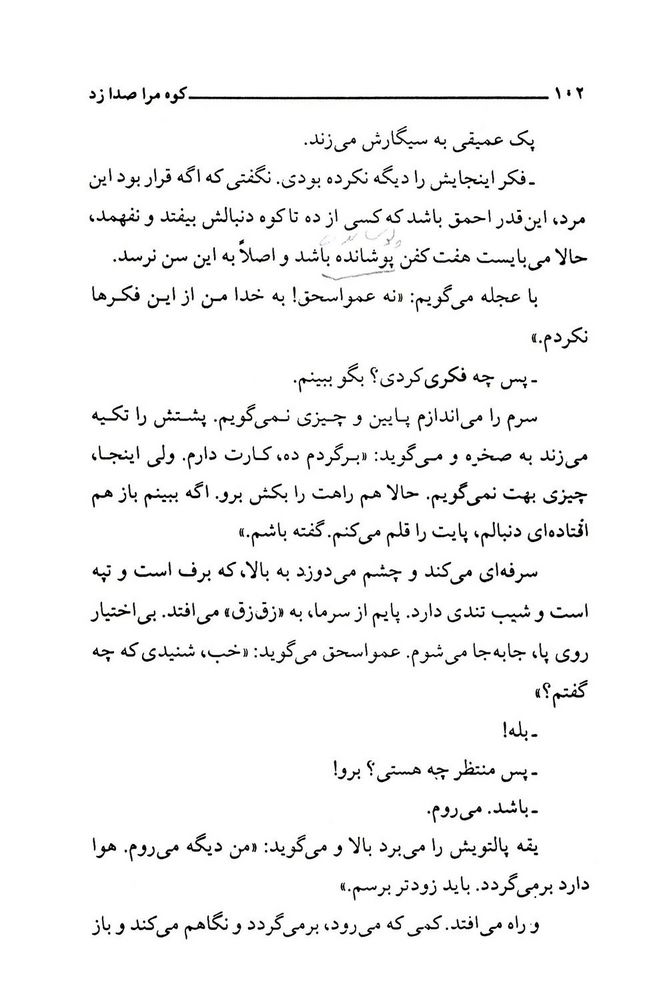 ۱۰۲ کوه مرا صدا زد
پک عمیقی به سیگارش می‌زند.
ـ فکر اینجایش را دیگه نکرده بودی. نگفتی که اگه قرار بود این
مرد، این‌قدر احمق باشد که کسی از ده تا کوه دنبالش بیفتد و نفهمد،
حالا می‌بایست هفت کفن پوشانده باشد و اصلاً به این سن نرسد.
با عجله می‌گویم: «نه عمواسحق! به خدا من از این فکرها
نکردم.»
ـ پس چه فکری کردی؟ بگو ببینم.
سرم را می‌اندازم پایین و چیزی نمی‌گویم. پشتش را تکیه
می‌زند به صخره و می‌گوید: «برگردم ده، کارت دارم. ولی اینجا،
چیزی بهت نمی‌گویم. حالا هم راهت را بکش برو. اگه ببینم باز هم
افتاده‌ای دنبالم، پایت را قلم می‌کنم. گفته باشم.»
سرفه‌ای می‌کند و چشم می‌دوزد به بالا، که برف است و تپه
است و شیب تندی دارد. پایم از سرما، به «زق‌زق» می‌افتد. بی‌اختیار
روی پا، جابه‌جا می‌شوم. عمواسحق می‌گوید: «خب، شنیدی که چه
گفتم؟»
ـ بله!
ـ پس منتظر چه هستی؟ برو!
ـ باشد. می‌روم.
یقه پالتویش را می‌برد بالا و می‌گوید: «من دیگه می‌روم. هوا
دارد برمی‌گردد. باید زودتر برسم.»
و راه می‌افتد. کمی که می‌رود، برمی‌گردد و نگاهم می‌کند و باز